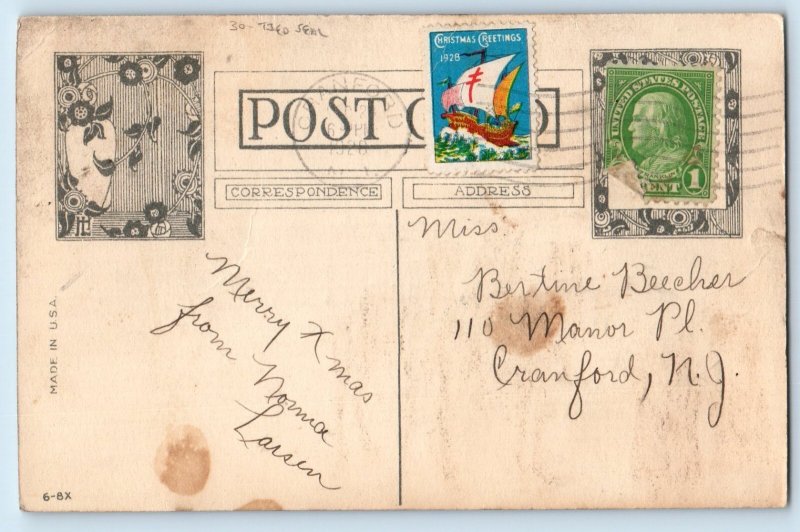 30- TIED SEAL
CHRISTMAS GREETINGS
1928
UNITED STATES POSTAGE
FRANKLIN
1 CENT 1
CRANFORD
1928
N.J.
POST CARD
CORRESPONDENCE
ADDRESS
Miss.
Bertine Beecher
110 Manor Pl.
Cranford, N.J.
Merry Xmas
from Norma
Larsen
MADE IN U.S.A.
6-8X